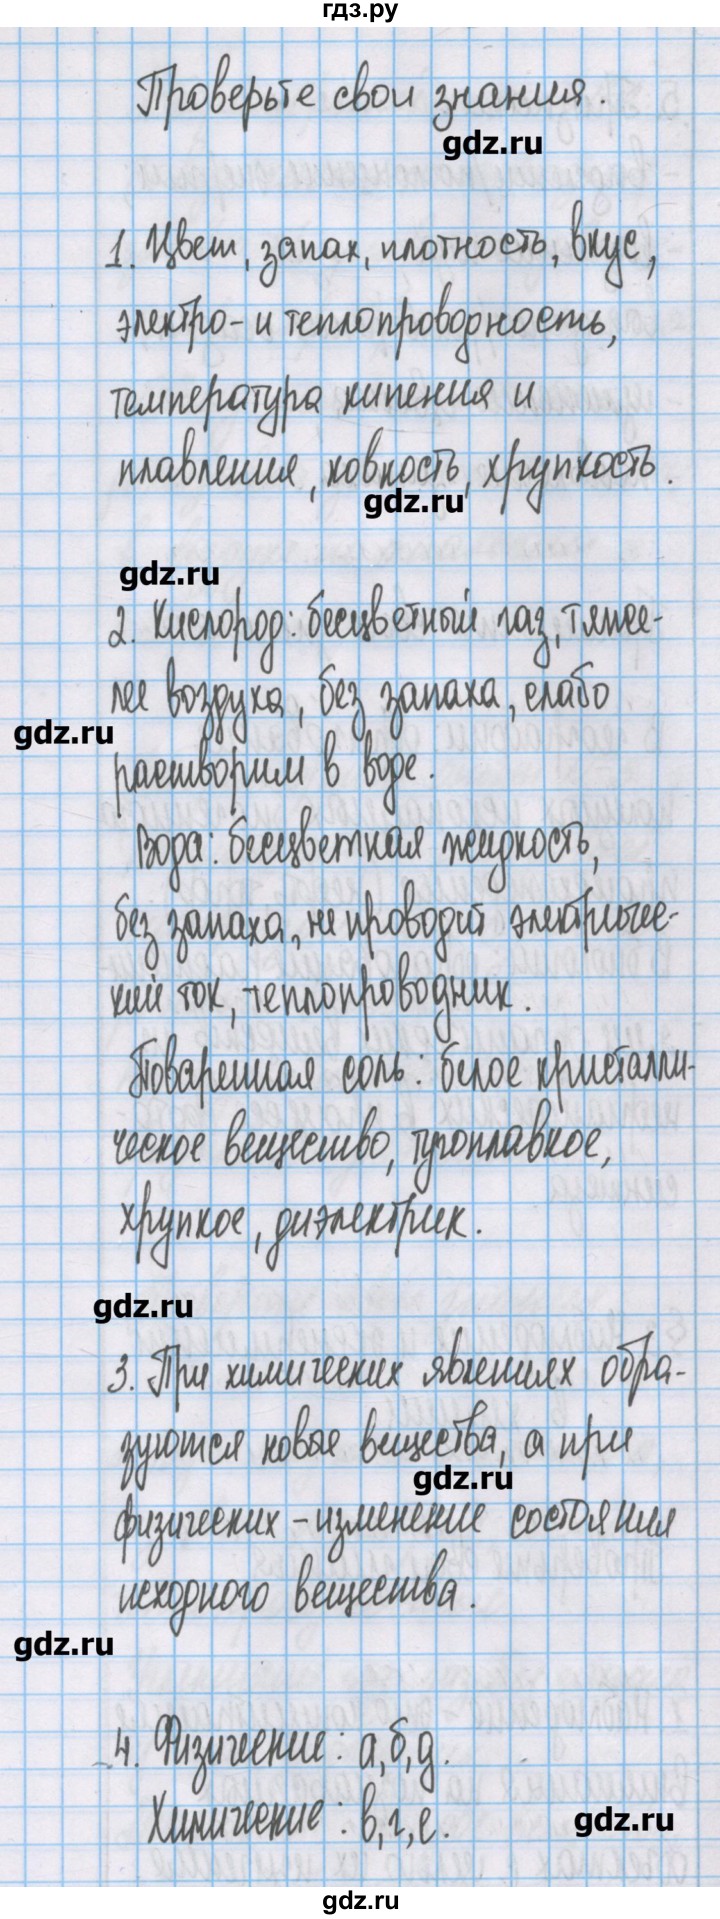 гдз.ру
Проверьте свои знания.
gdz.ru
1. Цвет, запах, плотность, вкус,
электро- и теплопроводность,
температура кипения и
плавления, ковкость, хрупкость.
gdz.ru
gdz.ru
2. Кислород: бесцветный газ, тяже-
лее воздуха, без запаха, слабо
gdz.ru
растворим в воде.
Вода: бесцветная жидкость,
без запаха, не проводит электричес-
кий ток, теплопроводник.
Поваренная соль: белое кристалли-
ческое вещество, тугоплавкое,
хрупкое, диэлектрик.
gdz.ru
3. При химических явлениях обра-
зуются новые вещества, а при
gdz.ru
физических - изменение состояния
исходного вещества.
gdz.ru
4. Физические: а, б, д.
Химические: в, г, е.
gdz.ru
gdz.ru